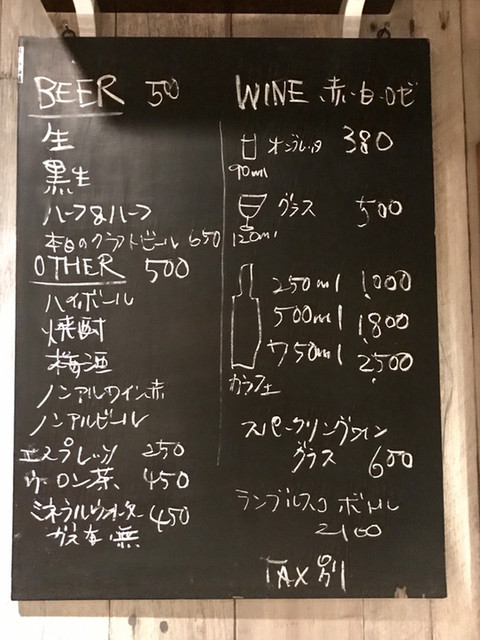 BEER 500
生
黒生
ハーフ&ハーフ
本日のクラフトビール 650
OTHER 500
ハイボール
焼酎
梅酒
ノンアルワイン赤
ノンアルビール
エスプレッソ 250
ウーロン茶 450
ミネラルウォーター 450
ガス有 無
WINE 赤・白・ロゼ
オンブレッタ 380
90ml
グラス 500
120ml
250ml 1,000
500ml 1,800
750ml 2,500
カラフェ
スパークリングワイン
グラス 600
ランブルスコ ボトル
2100
TAX 別